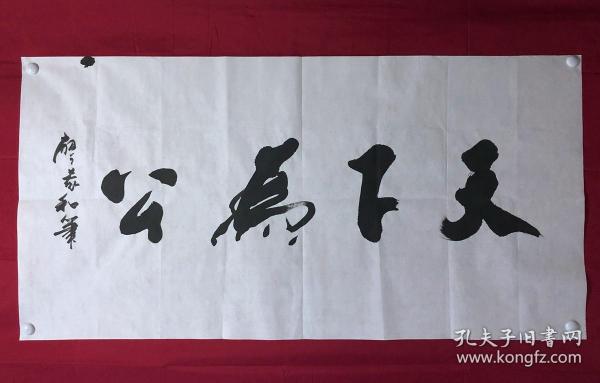 天下為公
家和筆
孔夫子旧書网
www.kongfz.com